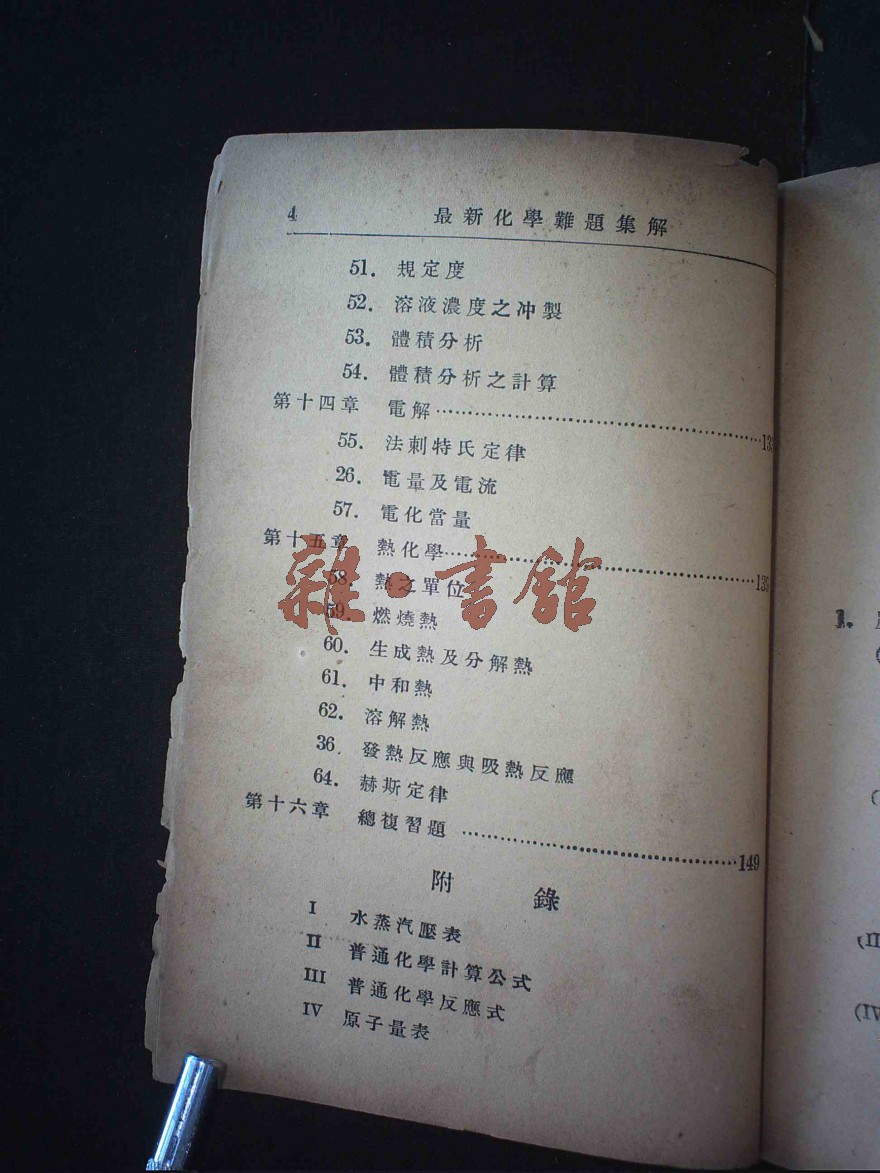 4 最新化學難題集解
51. 規定度
52. 溶液濃度之冲製
53. 體積分析
54. 體積分析之計算
第十四章 電解
55. 法刺特氏定律
26. 電量及電流
57. 電化當量
第十五章 熱化學 139
58. 熱之單位
59. 燃燒熱
雜·書館
60. 生成熱及分解熱
61. 中和熱
62. 溶解熱
36. 發熱反應與吸熱反應
64. 赫斯定律
第十六章 總複習題 149
附錄
I 水蒸汽壓表
II 普通化學計算公式
III 普通化學反應式
IV 原子量表
1.